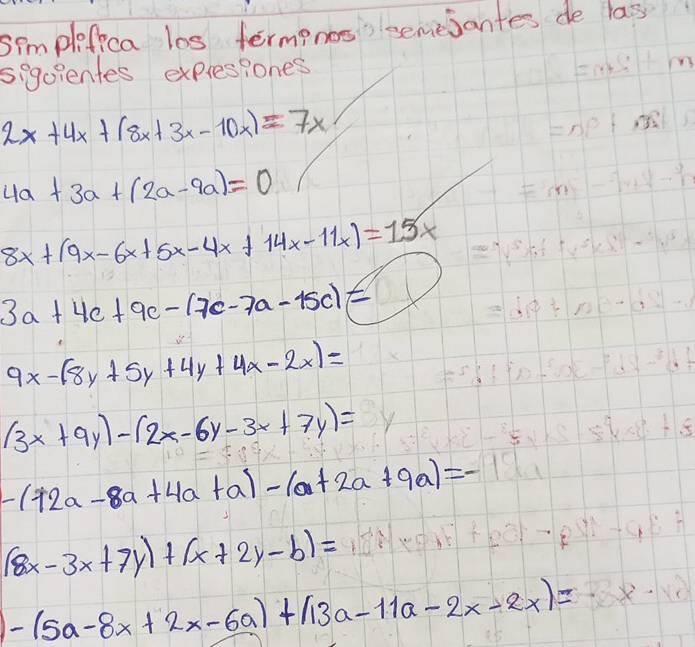 Simplifica los términos semejantes de las
siguientes expresiones
2x + 4x + (8x + 3x - 10x) = 7x
4a + 3a + (2a - 9a) = 0
8x + (9x - 6x + 5x - 4x + 14x - 11x) = 15x
3a + 4c + 9c - (7c - 7a - 15c) =
9x - (8y + 5y + 4y + 4x - 2x) =
(3x + 9y) - (2x - 6y - 3x + 7y) =
-(12a - 8a + 4a + a) - (a + 2a + 9a) = -
(8x - 3x + 7y) + (x + 2y - b) =
) - (5a - 8x + 2x - 6a) + (13a - 11a - 2x - 2x) =